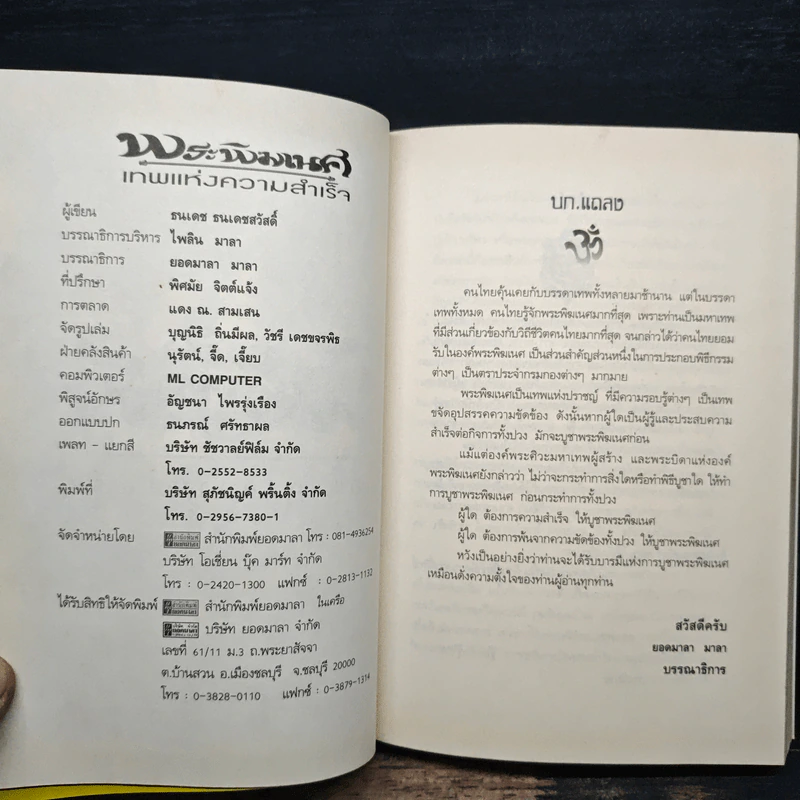 พระพิฆเนศ
เทพแห่งความสำเร็จ
ผู้เขียน ธนเดช ธนเดชสวัสดิ์
บรรณาธิการบริหาร ไพลิน มาลา
บรรณาธิการ ยอดมาลา มาลา
ที่ปรึกษา พิศมัย จิตต์แจ้ง
การตลาด แดง ณ. สามเสน
จัดรูปเล่ม บุญนิธิ ถิ่นมีผล, วัชรี เดชขจรพิธ
ฝ่ายคลังสินค้า นุรัตน์, จี๊ด, เจี๊ยบ
คอมพิวเตอร์ ML COMPUTER
พิสูจน์อักษร อัญชนา ไพรรุ่งเรือง
ออกแบบปก ธนภรณ์ ศรัทธาผล
เพลท - แยกสี บริษัท ชัชวาลย์ฟิล์ม จำกัด
โทร. 0-2552-8533
พิมพ์ที่ บริษัท สุภัชนิญค์ พริ้นติ้ง จำกัด
โทร. 0-2956-7380-1
จัดจำหน่ายโดย สำนักพิมพ์ยอดมาลา โทร : 081-4936254
บริษัท โอเชี่ยน บุ๊ค มาร์ท จำกัด
โทร : 0-2420-1300 แฟกซ์ : 0-2813-1132
ได้รับสิทธิให้จัดพิมพ์ สำนักพิมพ์ยอดมาลา ในเครือ
บริษัท ยอดมาลา จำกัด
เลขที่ 61/11 ม.3 ถ.พระยาสัจจา
ต.บ้านสวน อ.เมืองชลบุรี จ.ชลบุรี 20000
โทร : 0-3828-0110 แฟกซ์ : 0-3879-1314
บก.แถลง
ॐ
คนไทยคุ้นเคยกับบรรดาเทพทั้งหลายมาช้านาน แต่ในบรรดา
เทพทั้งหมด คนไทยรู้จักพระพิฆเนศมากที่สุด เพราะท่านเป็นมหาเทพ
ที่มีส่วนเกี่ยวข้องกับวิถีชีวิตคนไทยมากที่สุด จนกล่าวได้ว่าคนไทยยอม
รับในองค์พระพิฆเนศ เป็นส่วนสำคัญส่วนหนึ่งในการประกอบพิธีกรรม
ต่างๆ เป็นตราประจำกรมกองต่างๆ มากมาย
พระพิฆเนศเป็นเทพแห่งปราชญ์ ที่มีความรอบรู้ต่างๆ เป็นเทพ
ขจัดอุปสรรคความขัดข้อง ดังนั้นหากผู้ใดเป็นผู้รู้และประสบความ
สำเร็จต่อกิจการทั้งปวง มักจะบูชาพระพิฆเนศก่อน
แม้แต่องค์พระศิวะมหาเทพผู้สร้าง และพระบิดาแห่งองค์
พระพิฆเนศยังกล่าวว่า ไม่ว่าจะกระทำการสิ่งใดหรือทำพิธีบูชาใด ให้ทำ
การบูชาพระพิฆเนศ ก่อนกระทำการทั้งปวง
ผู้ใด ต้องการความสำเร็จ ให้บูชาพระพิฆเนศ
ผู้ใด ต้องการพ้นจากความขัดข้องทั้งปวง ให้บูชาพระพิฆเนศ
หวังเป็นอย่างยิ่งว่าท่านจะได้รับบารมีแห่งการบูชาพระพิฆเนศ
เหมือนดั่งความตั้งใจของท่านผู้อ่านทุกท่าน
สวัสดีครับ
ยอดมาลา มาลา
บรรณาธิการ